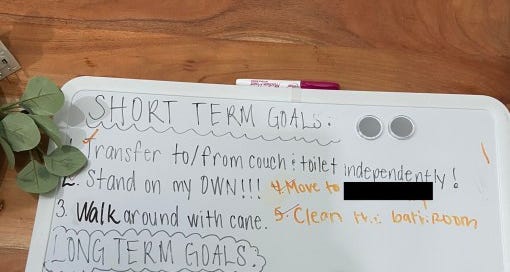 SHORT TERM GOALS:
1. Transfer to/from couch & toilet independently!
2. Stand on my OWN!!!
3. Walk around with cane.
4. Move to
5. Clean the bathroom
LONG TERM GOALS: